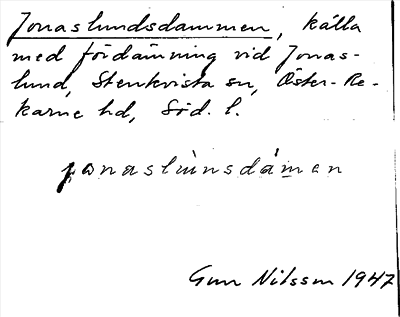 Jonaslundsdammen, källa
med fördämning vid Jonas-
lund, Stenkvista sn, Öster-Re-
karne hd, Söd. l.
jonaslùnsdámen
Gun Nilsson 1947